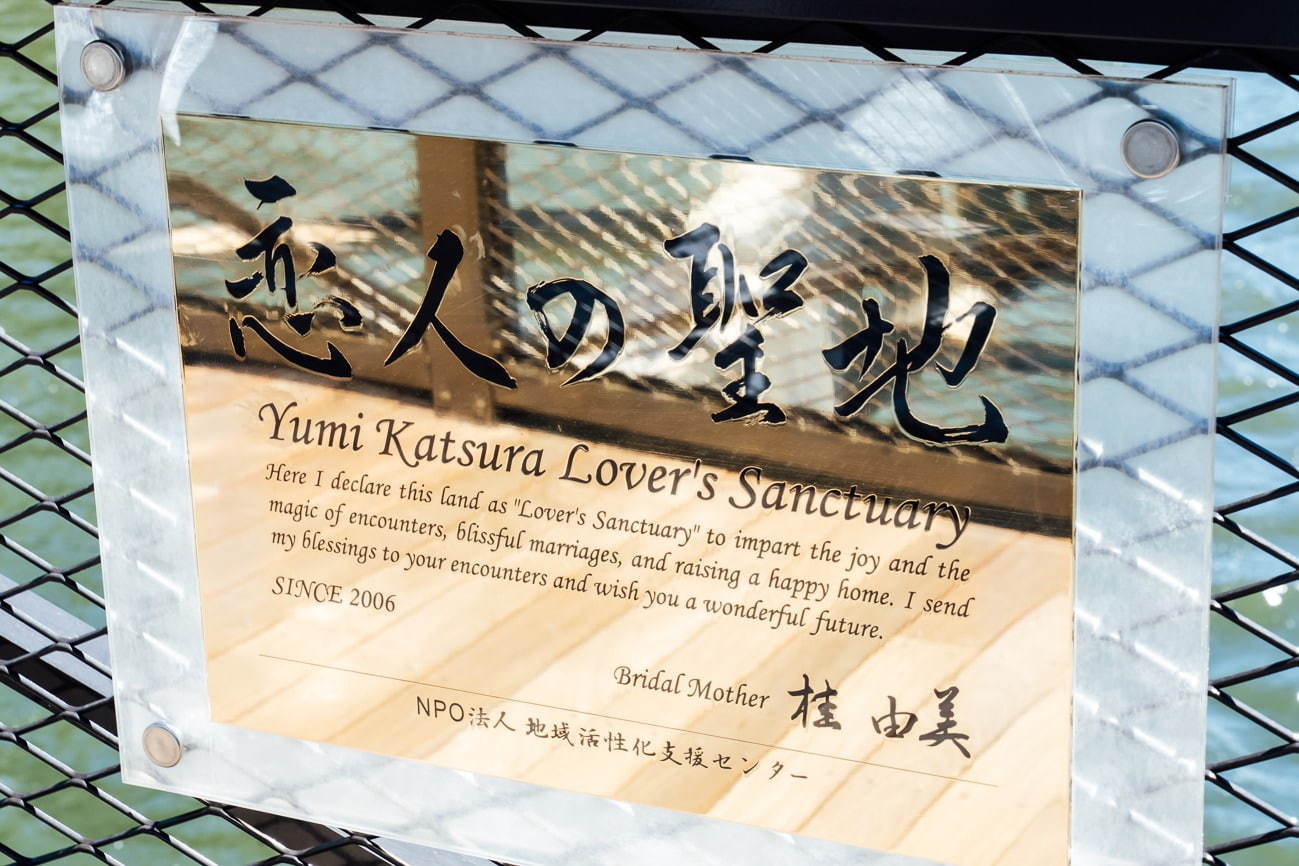 恋人の聖地
Yumi Katsura Lover's Sanctuary
Here I declare this land as "Lover's Sanctuary" to impart the joy and the
magic of encounters, blissful marriages, and raising a happy home. I send
my blessings to your encounters and wish you a wonderful future.
SINCE 2006
Bridal Mother 桂 由美
NPO法人 地域活性化支援センター